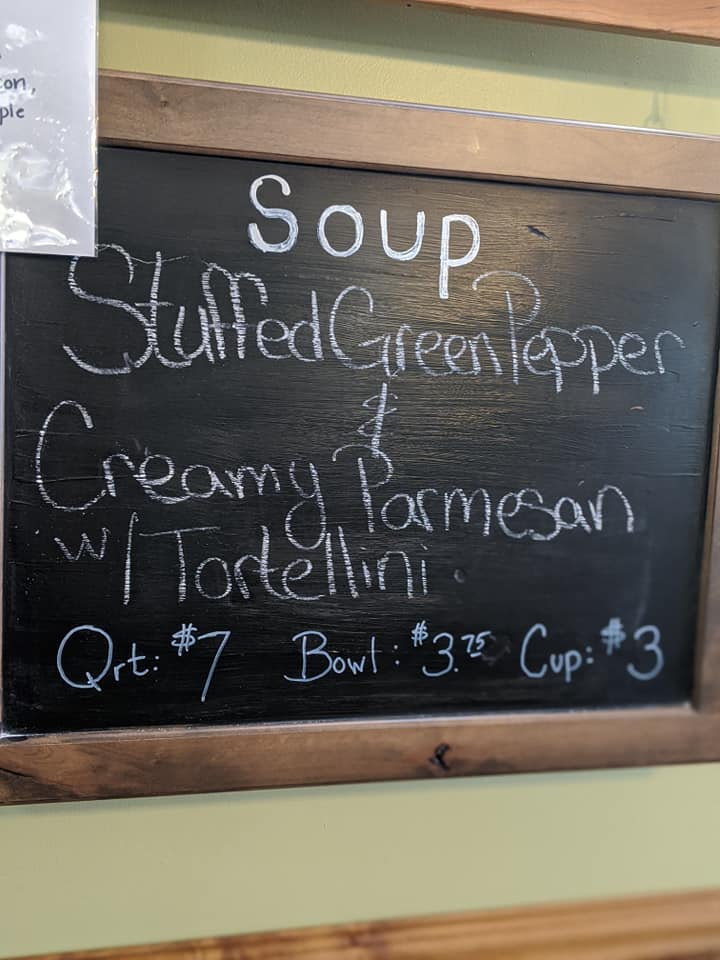 con,
ple
Soup
Stuffed Green Pepper
&
Creamy Parmesan
w/ Tortellini.
Qrt: $7 Bowl: $3.75 Cup: $3